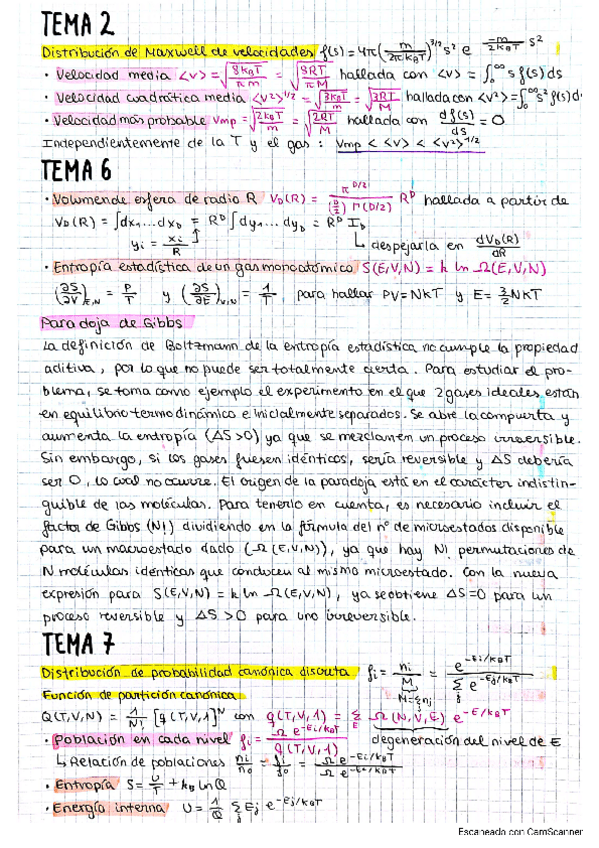 TEMA 2
Distribución de Maxwell de velocidades f(s) = 4π(m/2πk_BT)^3/2 s² e^(-m/2k_BT s²)
· Velocidad media <v> = √(8k_BT/πm) = √(8RT/πM) hallada con <v> = ∫₀^∞ s f(s) ds
· Velocidad cuadrática media <v²>^1/2 = √(3k_BT/m) = √(3RT/M) hallada con <v²> = ∫₀^∞ s² f(s) d
· Velocidad más probable Vmp = √(2k_BT/m) = √(2RT/M) hallada con df(s)/ds = 0
Independientemente de la T y el gas : Vmp < <v> < <v²>^1/2
TEMA 6
· Volumen de esfera de radio R V_D(R) = π^(D/2)/((D/2) Γ(D/2)) R^D hallada a partir de
V_D(R) = ∫dx₁...dx_D = R^D ∫dy₁...dy_D = R^D I_D
yi = xi/R ↳ despejarla en dV_D(R)/dR
· Entropía estadística de un gas monoatómico S(E,V,N) = k ln Ω(E,V,N)
(∂S/∂V)_E,N = P/T y (∂S/∂E)_V,N = 1/T para hallar PV=NkT y E = 3/2 NkT
Paradoja de Gibbs
La definición de Boltzmann de la entropía estadística no cumple la propiedad
aditiva, por lo que no puede ser totalmente cierta. Para estudiar el pro-
blema, se toma como ejemplo el experimento en el que 2 gases ideales están
en equilibrio termodinámico e inicialmente separados. Se abre la compuerta y
aumenta la entropía (ΔS>0) ya que se mezclan en un proceso irreversible.
Sin embargo, si los gases fuesen idénticos, sería reversible y ΔS debería
ser 0, lo cual no ocurre. El origen de la paradoja está en el carácter indistin-
guible de las moléculas. Para tenerlo en cuenta, es necesario incluir el
factor de Gibbs (N!) dividiendo en la fórmula del nº de microestados disponible
para un macroestado dado (Ω(E,V,N)), ya que hay N! permutaciones de
N moléculas idénticas que conducen al mismo microestado. Con la nueva
expresión para S(E,V,N) = k ln Ω(E,V,N), ya se obtiene ΔS=0 para un
proceso reversible y ΔS>0 para uno irreversible.
TEMA 7
Distribución de probabilidad canónica discreta fi = ni/M = e^(-Ei/k_BT)/Σj e^(-Ej/k_BT)
M=Σnj
Función de partición canónica
Q(T,V,N) = 1/N! [q(T,V,1)]^N con q(T,V,1) = Σ_E Ω(N,V,E) e^(-E/k_BT)
· Población en cada nivel fi = Ω e^(-Ei/k_BT)/q(T,V,1) degeneración del nivel de E
↳ Relación de poblaciones ni/n₀ = fi/f₀ = Ω e^(-Ei/k_BT)/Ω e^(-E₀/k_BT)
· Entropía S = U/T + k_B ln Q
· Energía interna U = 1/Q Σj Ej e^(-Ej/k_BT)
Escaneado con CamScanner